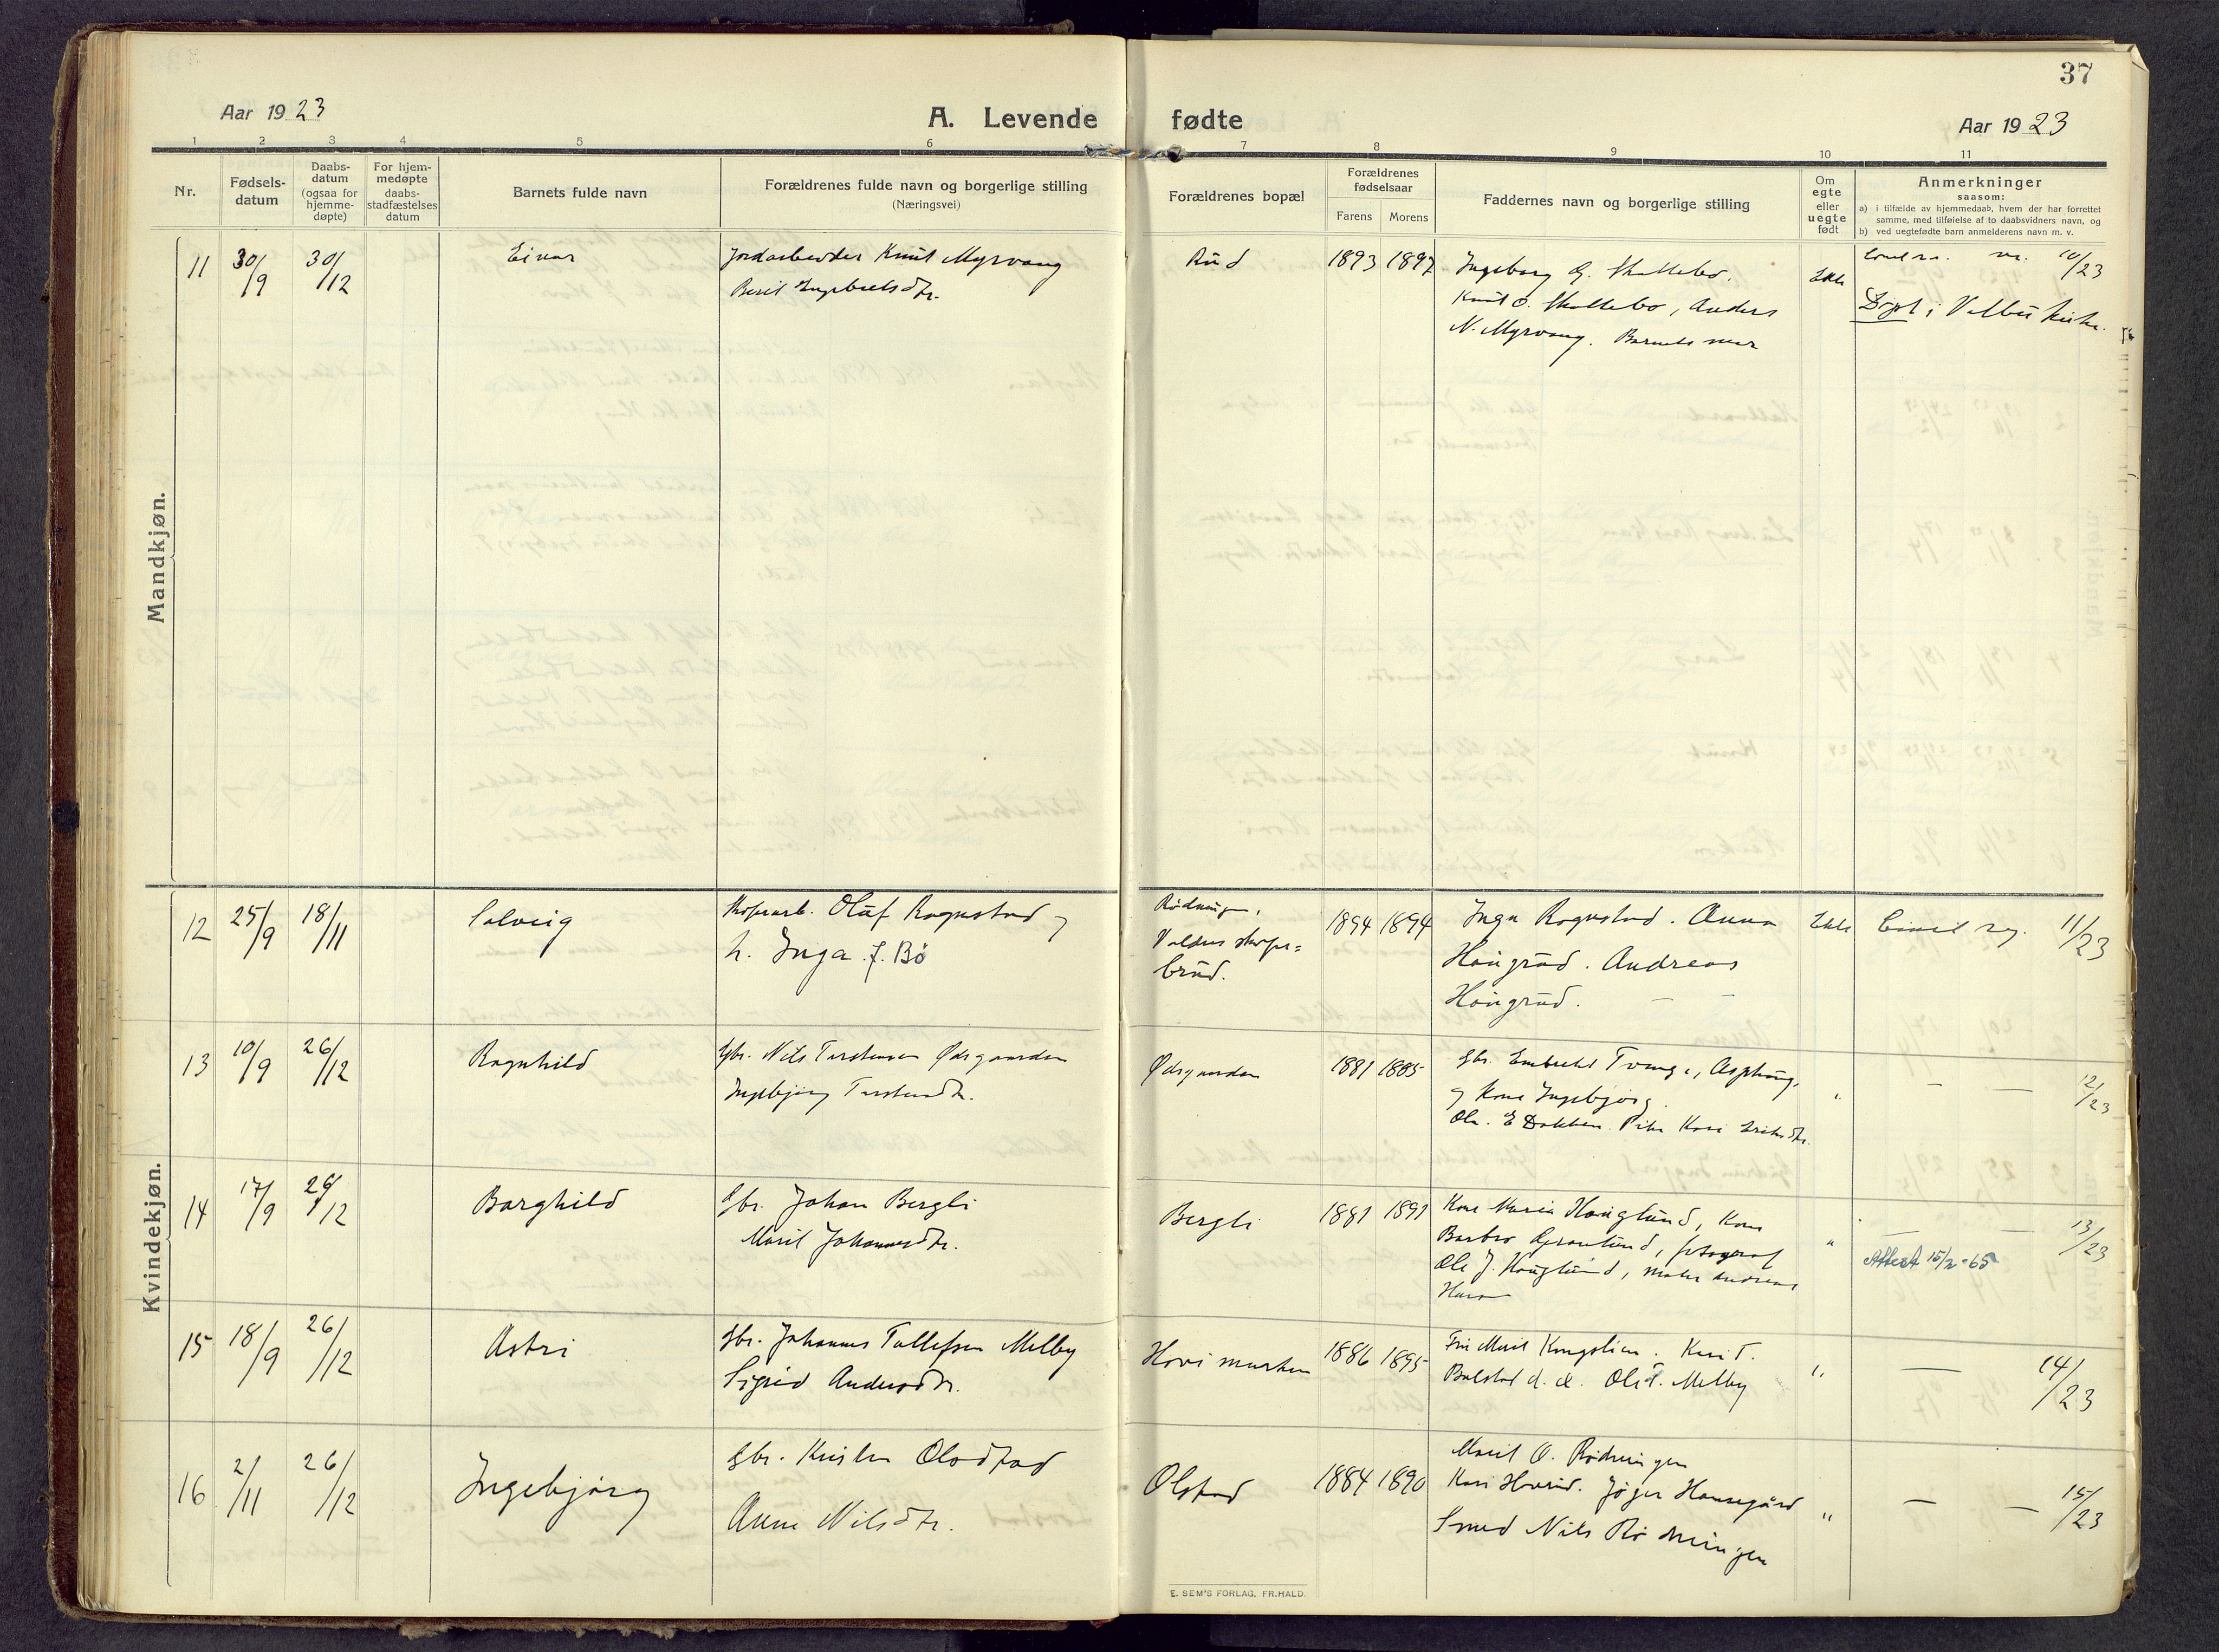 37
Aar 1923
A. Levende fødte
Aar 1923
1 2 3 4 5 6 7 8 9 10 11
Nr.
Fødsels-
datum
Daabs-
datum
(ogsaa for
hjemme-
døpte)
For hjem-
medøpte
daabs-
stadfæstelses
datum
Barnets fulde navn
Forældrenes fulde navn og borgerlige stilling
(Næringsvei)
Forældrenes bopæl
Forældrenes
fødselsaar
Farens Morens
Faddernes navn og borgerlige stilling
Om
egte
eller
uegte
født
Anmerkninger
saasom:
a) i tilfælde av hjemmedaab, hvem der har forrettet
samme, med tilføielse af to daabsvidners navn, og
b) ved uegtefødte barn anmelderens navn m. v.
Mandkjøn.
11 30/9 30/12 Einar
Jordarbeider Knut Myrvang
Berit Ingebretsdtr.
Rud 1893 1897
Ingeborg G. Skattebo.
Knut O. Skattebo, Anders
N. Myrvang. Barnets mor
Ekte
10/23
Døpt i Volbu kirke.
Kvindekjøn.
12 25/9 18/11 Solveig
Olaf Rognstad og
h. Inga f. Bø
Rødningen,
Valdres skifer=
brud.
1894 1894
Inga Rognstad. Anna
Haugrud. Andreas
Haugrud. — —
Ekte
Civil reg. 11/23
13 10/9 26/12 Ragnhild
Gbr. Nils Torstensen Ødegaarden
Ingebjørg Torstensdtr.
Ødegaarden 1881 1885
Gbr. Embrekt Tvenge, Asphaug,
og Kone Ingebjørg.
Ole. E Dokken. Pike Kari Eriksdtr.
" — — 12/23
14 17/9 26/12 Borghild
Gbr. Johan Bergli
Marit Johannesdtr.
Bergli 1881 1891
Kone Maria Hauglund, Kone
Barbro Granlund, fotograf
Ole J. Hauglund, maler Andreas
" — — 13/23
Attest 15/2-65
15 18/9 26/12 Astri
Gbr. Johannes Tollefsen Melby
Sigrid Andersdtr.
Hovimarken 1886 1895
Marit Kongslien. Kari T.
Bolstad d. e. Ole T. Melby
" — 14/23
16 2/11 26/12 Ingebjørg
Gbr. Kristen Olsstad
Anne Nilsdtr.
Olstad 1884 1890
Marit O. Rødningen
Kari Hovrud. Jøger Hansegård
Smed Nils Rødningen
" — — 15/23
E. SEM'S FORLAG, FR.HALD.